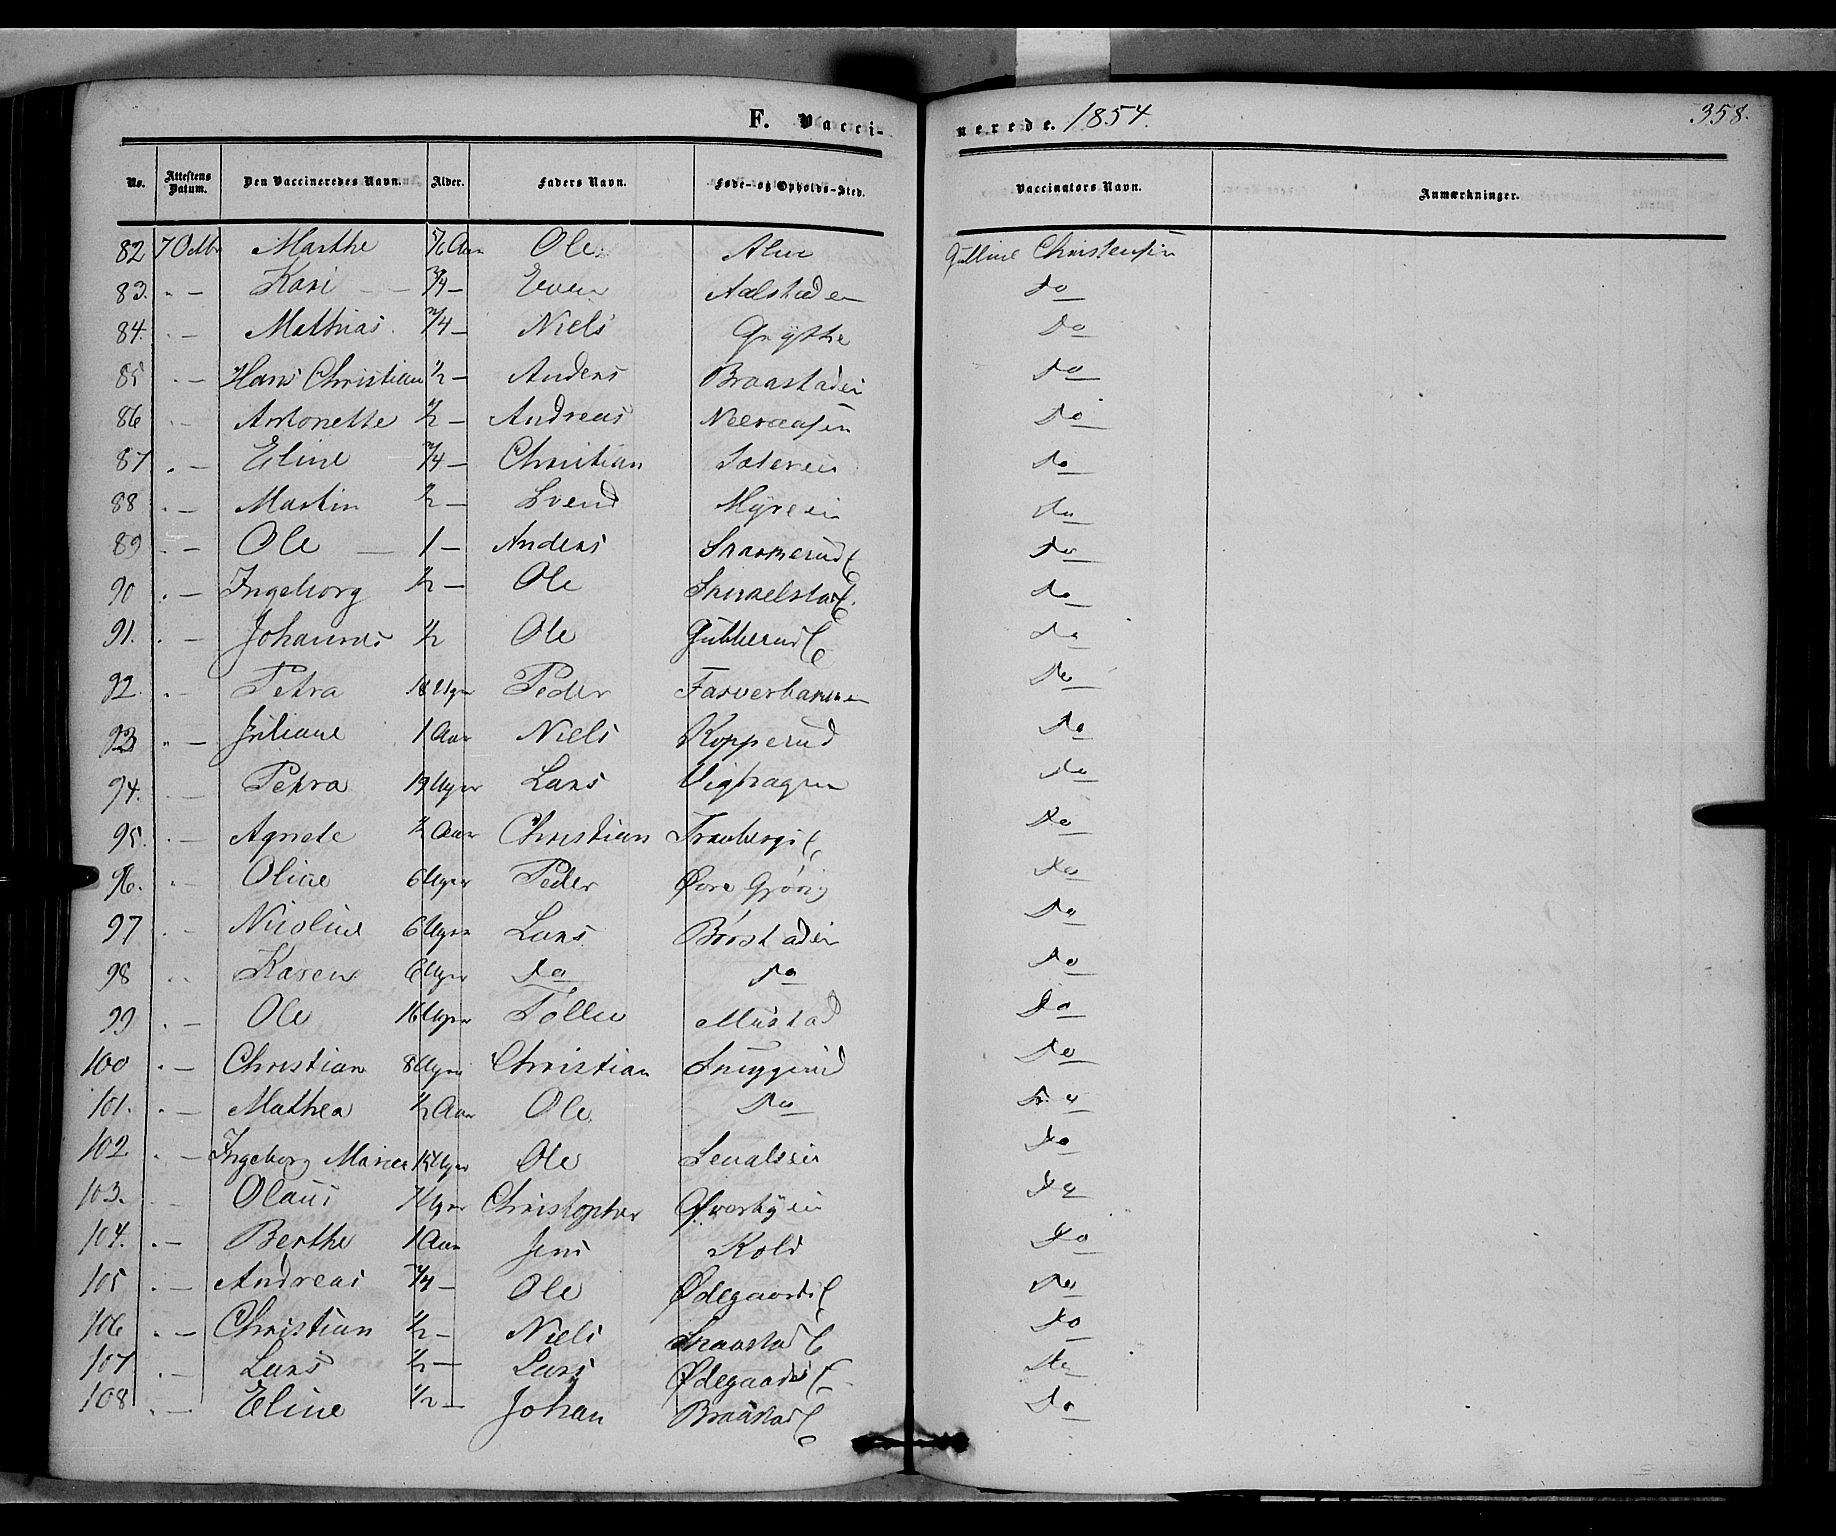 F. Vacci-
nerede. 1854.
358.
No. Attestens Datum. Den Vaccineredes Navn. Alder. Faders Navn. Føde- og Opholds-Sted. Vaccinators Navn. Anmærkninger.
82 7 Octbr Marthe Aar Ole Alm Gulline Christensen
83. " — Kari 3/4 — Even Aalstaden Do
84. " — Mathias 3/4 — Niels Grythe Do
85 " — Hans Christian 1/2 — Anders Braastadei Do
86 " — Antonette 1/2 — Andreas Do
87 " — Eline 3/4 — Christian Do
88 " — Martin 1/2 — Svend Myrein Do
89 " — Ole — 1 — Anders Do
90 " — Ingeborg 1/2 — Ole Do
91. " — Johannes 1/2 Ole Do
92. " — Petra 18 Uger Peder Do
93 " — Juliane 1 Aar Niels Kopperud Do
94. " — Petra 19 Uger Lars Do
95. " — Agnete 1/2 Aar Christian Do
96. " — Oline 6 Uger Peder Do
97 " — Nicoline 6 Uger Lars Do
98 " — Karen 6 Uger Do Do Do
99 " — Ole 16 Uger Tollev Mustad Do
100 " — Christian 8 Uger Christian Snuggerud Do
101. " — Mathea 1/2 Aar Ole Do Do
102 " — Ingeborg Marie Uger Ole Do
103. " — Olaus Uger Christopher Do
104. " — Berthe 1 Aar Jens Kold Do
105 " — Andreas 3/4 — Ole Ødegaards E Do
106 " — Christian 1/2 — Niels Do
107 " — Lars 1/2 — Lars Ødegaards E Do
108 " — Eline 1/2 — Johan Braastad E Do